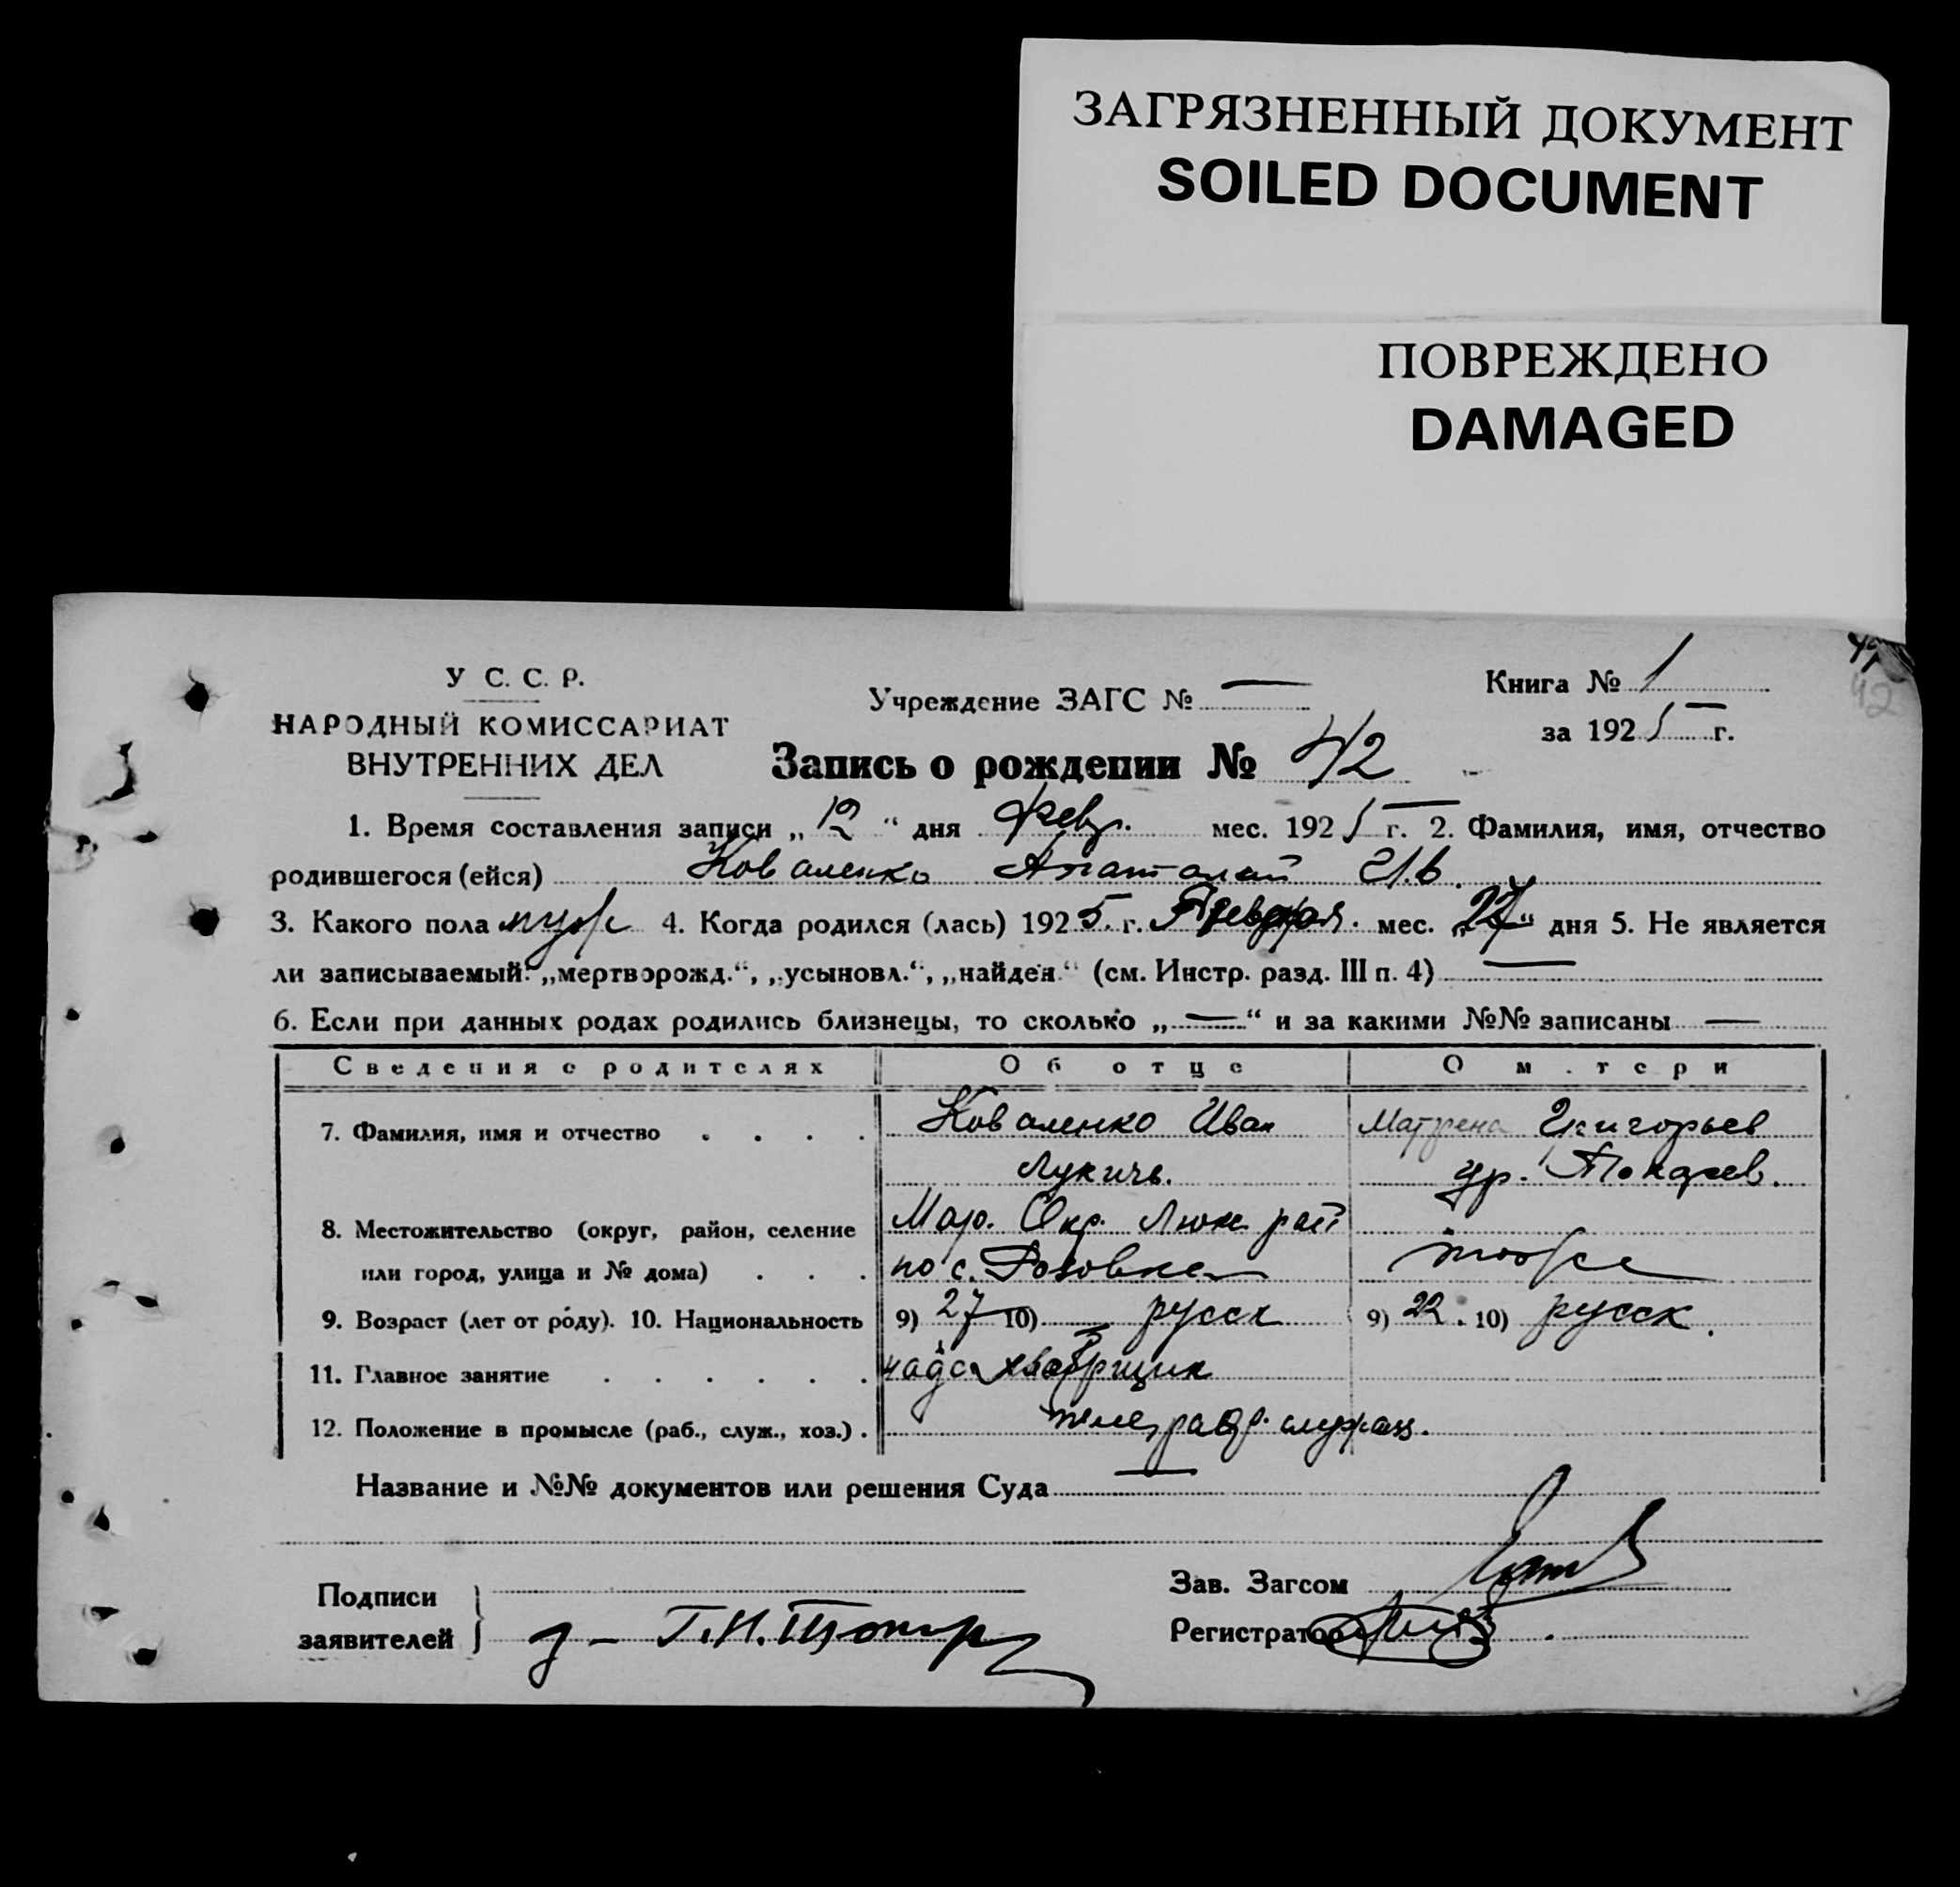 ЗАГРЯЗНЕННЫЙ ДОКУМЕНТ
SOILED DOCUMENT
ПОВРЕЖДЕНО
DAMAGED
42
У С. С. Р.
НАРОДНЫЙ КОМИССАРИАТ
ВНУТРЕННИХ ДЕЛ
Учреждение ЗАГС № —
Книга № 1
за 1925 г.
Запись о рождении № 42
1. Время составления записи „12“ дня Февр. мес. 1925 г. 2. Фамилия, имя, отчество
родившегося (ейся) Коваленко Анатолий Ив.
3. Какого пола муж 4. Когда родился (лась) 1925. г. мес. „27“ дня 5. Не является
ли записываемый: „мертворожд.“, „усыновл.“, „найден.“ (см. Инстр. разд. III п. 4) —
6. Если при данных родах родились близнецы, то сколько „—“ и за какими №№ записаны —
Сведения о родителях Об отце О матери
7. Фамилия, имя и отчество . . . . Коваленко Иван Матрена Григорьев
Лукичь.
8. Местожительство (округ, район, селение Мар. Окр. Люкс рай
или город, улица и № дома) . . . по с. Розовке тоже
9. Возраст (лет от роду). 10. Национальность 9) 27 10) русск 9) 22. 10) русск.
11. Главное занятие . . . . . .
12. Положение в промысле (раб., служ., хоз.) . служащ.
Название и №№ документов или решения Суда —
Подписи
заявителей
Зав. Загсом
Регистратор